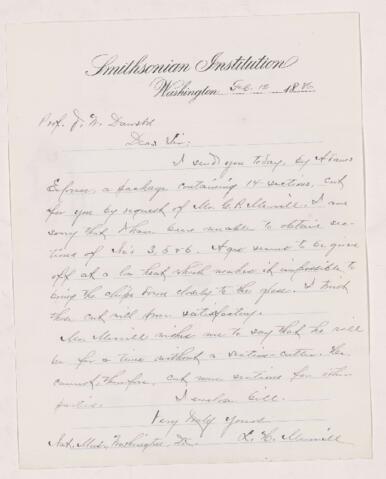 Smithsonian Institution
Washington Feb. 12 188
Prof. J. W.
Dear Sir:
I send you today, by Adams
Express, a package containing 14 sections, cut
for you by request of Mr. G. P. Merrill. I am
sorry that I have been unable to obtain sec-
tions of No's 3, 5 & 6. A gas seems to be given
off at a low heat which makes it impossible to
bring the chips down closely to the glass. I trust
those cut will prove satisfactory.
Mr. Merrill wishes me to say that he will
be for a time without a section-cutter. He
cannot, therefore, cut more sections for other
parties. I enclose bill.
Very truly yours
Nat. Mus., Washington, D.C. L. H. Merrill